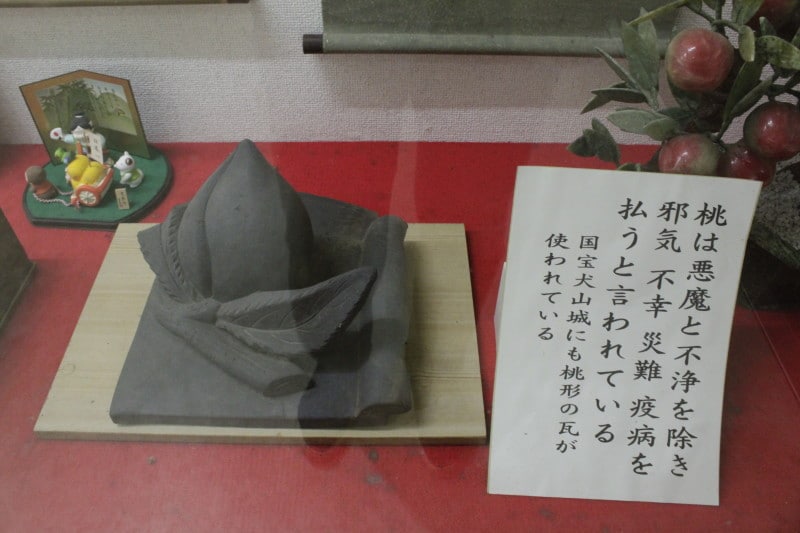 桃は悪魔と不浄を除き
邪気 不幸 災難 疫病を
払うと言われている
国宝犬山城にも桃形の瓦が
使われている